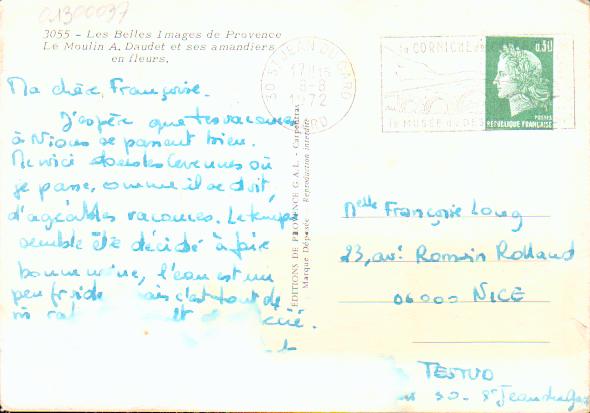 01300037
3055 - Les Belles Images de Provence
Le Moulin A. Daudet et ses amandiers
en fleurs.
30 ST JEAN DU GARD
17H15
8-8
1972
GARD
la CORNICHE des
le MUSÉE du DÉSERT
0,30
POSTES
REPUBLIQUE FRANÇAISE
Ma chère Françoise.
J'espère que tes vacances
à Nions se passent bien.
Me voici dans les Cevennes où
je passe, comme il se doit,
d'agréables vacances. Le temps
semble être décidé à faire
bonne mine, l'eau est un
peu froide mais c'est tout de
EDITIONS DE PROVENCE G.A.L. - Carpentras
Marque Déposée - Reproduction interdite
Melle Françoise Long
23, av. Romain Rolland
06000 NICE
TESTUD
30 - St Jean du Gard